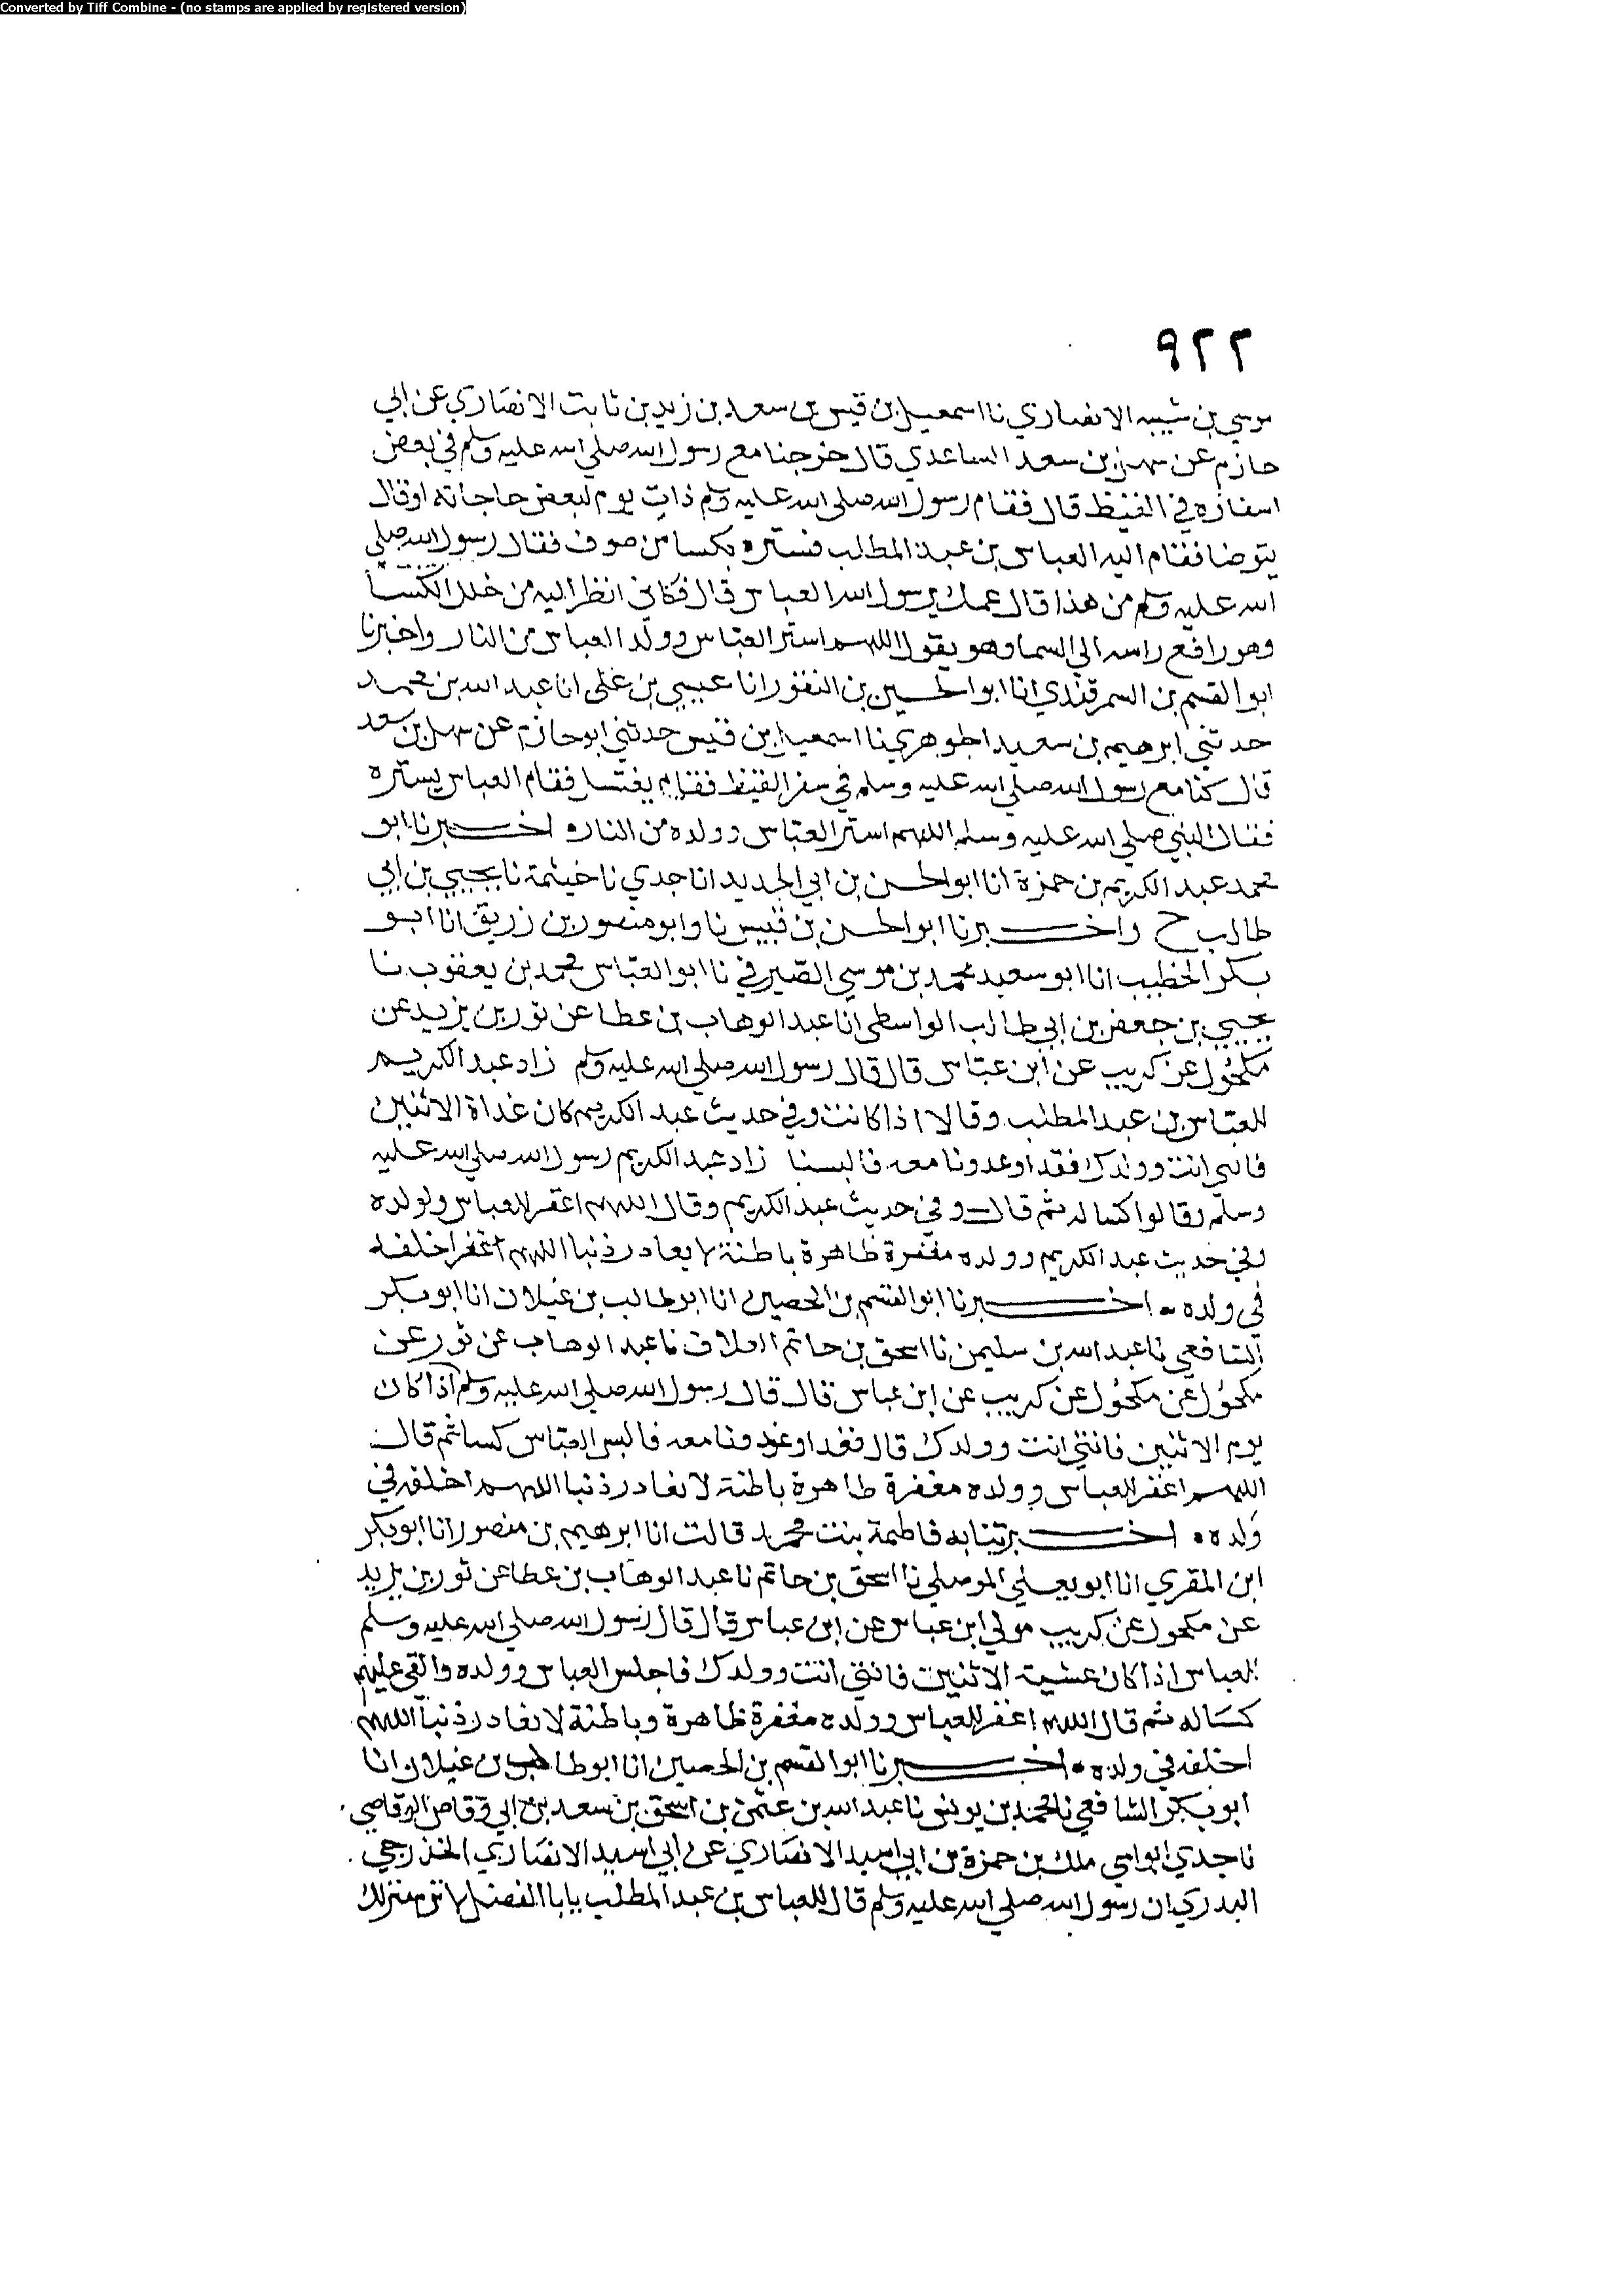 Converted by Tiff Combine - (no stamps are applied by registered version)
٩٢٢
موسي بن شيبه الانصاري نا اسمعيل بن قيس بن سعد بن زيد بن ثابت الانصاري عن ابي
حازم عن سهل بن سعد الساعدي قال خرجنا مع رسول الله صلي الله عليه وسلم في بعض
اسفاره في القيظ قال فقام رسول الله صلي الله عليه وسلم ذات يوم لبعض حاجاته او قال
يتوضا فقام اليه العباس بن عبد المطلب فستره بكسا من صوف فقال رسول الله صلي
الله عليه وسلم من هذا قال عمك يرسول الله العباس قال فكاني انظر اليه من خلل الكسا
وهو رافع راسه الي السما وهو يقول اللهم استر العباس وولد العباس من النار واخبرنا
ابو القسم بن السمرقندي انا ابو الحسين بن النقور انا عيسي بن علي انا عبد الله بن محمد
حدثني ابرهيم بن سعيد الجوهري نا اسمعيل بن قيس حدثني ابو حازم عن سهل بن سعد
قال كنا مع رسول الله صلي الله عليه وسلم في سفر القيظ فقام يغتسل فقام العباس يستره
فقال النبي صلي الله عليه وسلم اللهم استر العباس وولده من النار ه اخبرنا ابو
محمد عبد الكريم بن حمزة انا ابو الحسن بن ابي الحديد انا جدي نا خيثمة نا يحيي بن ابي
طالب ح واخبرنا ابو الحسن بن قبيس نا وابو منصور بن زريق انا ابو
بكر الخطيب انا ابو سعيد محمد بن موسي الصيرفي نا ابو العباس محمد بن يعقوب نا
يحيي بن جعفر بن ابي طالب الواسطي انا عبد الوهاب بن عطا عن ثور بن يزيد عن
مكحول عن كريب عن ابن عباس قال قال رسول الله صلي الله عليه وسلم زاد عبد الكريم
للعباس بن عبد المطلب وقالا اذا كانت وفي حديث عبد الكريم كان غداة الاثنين
فاتني انت وولدك فغدا وغدونا معه فالبسنا زاد عبد الكريم رسول الله صلي الله عليه
وسلم وقالوا كسا له ثم قال وفي حديث عبد الكريم وقال اللهم اغفر للعباس ولولده
وفي حديث عبد الكريم وولده مغفرة ظاهرة باطنة لا يغادر ذنبا اللهم اخلفه
في ولده ه اخبرنا ابو القسم بن الحصين انا ابو طالب بن غيلان انا ابو بكر
الشافعي نا عبد الله بن سليمن نا اسحق بن حاتم العلاف نا عبد الوهاب عن ثور عن
مكحول عن مكحول عن كريب عن ابن عباس قال قال رسول الله صلي الله عليه وسلم اذا كان
يوم الاثنين فاتني انت وولدك قال فغدا وغدونا معه فالبس العباس كسا ثم قال
اللهم اغفر للعباس وولده مغفرة ظاهرة باطنة لا تغادر ذنبا اللهم اخلفه في
ولده ه اخبرتنا به فاطمة بنت محمد قالت انا ابرهيم بن منصور انا ابو بكر
ابن المقري انا ابو يعلي الموصلي نا اسحق بن حاتم نا عبد الوهاب بن عطا عن ثور بن يزيد
عن مكحول عن كريب مولي ابن عباس عن ابن عباس قال قال رسول الله صلي الله عليه وسلم
للعباس اذا كان عشية الاثنين فاتني انت وولدك فاجلس العباس وولده والقي عليهم
كسا له ثم قال اللهم اغفر للعباس وولده مغفرة ظاهرة وباطنة لا تغادر ذنبا اللهم
اخلفه في ولده ه اخبرنا ابو القسم بن الحصين انا ابو طالب بن غيلان انا
ابو بكر الشافعي نا محمد بن يونس نا عبد الله بن عثمن بن اسحق بن سعد بن ابي وقاص الوقاصي
نا جدي ابو امي ملك بن حمزة بن ابي اسيد الانصاري عن ابي اسيد الانصاري الخزرجي
البدري ان رسول الله صلي الله عليه وسلم قال للعباس بن عبد المطلب يابا الفضل لا ترم منزلك